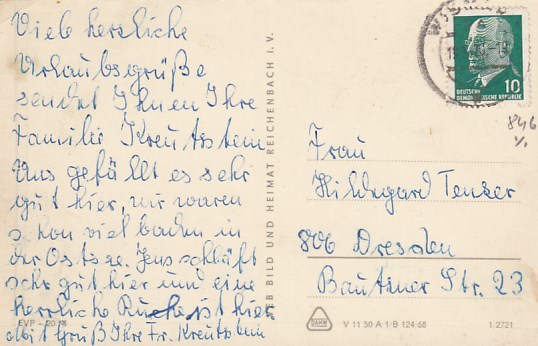 Vieb herzliche
Urlaubsgrüße
sendet Ihnen Ihre
Familie Kreutstein
Uns gefällt es sehr
gut hier, wir waren
schon viel baden in
der Ostsee. Jens schläft
sehr gut hier und eine
herrliche Ruhe ist hier
Mit Gruß Ihre Fr. Kreutstein
EVP
VEB BILD UND HEIMAT REICHENBACH I. V.
10
DEUTSCHE
DEMOKRATISCHE REPUBLIK
846
Frau
Hildegard Tenzer
806 Dresden
Bautzner Str. 23
V 11 50 A 1 B 124/68
1 2721